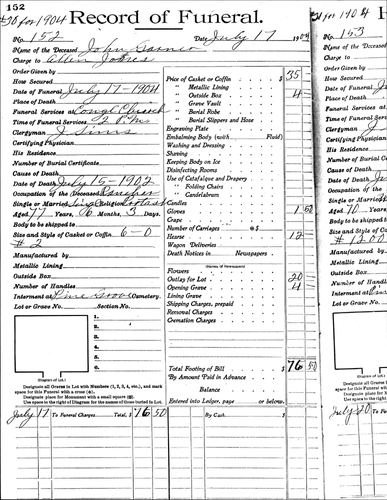 152
#30 for 1904
Record of Funeral.
No. 152 Date July 17 190
Name of the Deceased John
Charge to Allen
Order Given by
How Secured
Date of Funeral July 17 - 1904
Place of Death
Funeral Services at Church
Time of Funeral Services 2 P.M.
Clergyman J Sims
Certifying Physician
His Residence
Number of Burial Certificate
Cause of Death
Date of Death July 15 - 1902
Occupation of the Deceased
Single or Married Religion
Aged 77 Years, 6 Months, 3 Days.
Body to be shipped to
Size and Style of Casket or Coffin, 6-0
# 2
Manufactured by
Metallic Lining
Outside Box
Number of Handles
Interment at Pine Grove Cemetery.
Lot or Grave No. Section No.
1.
2.
3.
4.
5.
6.
(Diagram of Lot.)
Designate all Graves in Lot with Numbers (1, 2, 3, 4, etc.), and mark space for this Funeral with a cross (x).
Designate place for Monument with a small square (□).
Use space to the right of Diagram for the names of those buried in Lot.
Price of Casket or Coffin $ 35
" Metallic Lining
" Outside Box 4
" Grave Vault
" Burial Robe
" Burial Slippers and Hose
Engraving Plate
Embalming Body (with Fluid)
Washing and Dressing
Shaving
Keeping Body on Ice
Disinfecting Rooms
Use of Catafalque and Drapery
" Folding Chairs
" Candelabrum
Candles
Gloves 1 50
Crape
Number of Carriages @ $
Hearse 12
Wagon Deliveries
Death Notices in Newspapers
(Names of Newspapers)
Flowers
Outlay for Lot 20
Opening Grave 4
Lining Grave
Shipping Charges, prepaid
Removal Charges
Cremation Charges
Total Footing of Bill $ 76 50
By Amount Paid in Advance
Balance
Entered into Ledger, page or below.
July 17 To Funeral Charges Total, $ 76 50 By Cash $
#31 for 1904
No. 153
Name of the
Charge to
Order Given
How Secured
Date of Fune
Place of Deat
Funeral Serv
Time of Fune
Clergyman
Certifying Ph
His Residen
Number of B
Cause of Deat
Date of Death
Occupation of
Single or Ma
Aged 70 Ye
Body to be shi
Size and Sty
# 12.00
Manufactu
Metallic Lin
Outside Box
Number of H
Interment at
Lot or Grave
(Diagram of Lot.)
Designate all G
space for this Fun
Designate place
Use space to the
July 20 To Fun